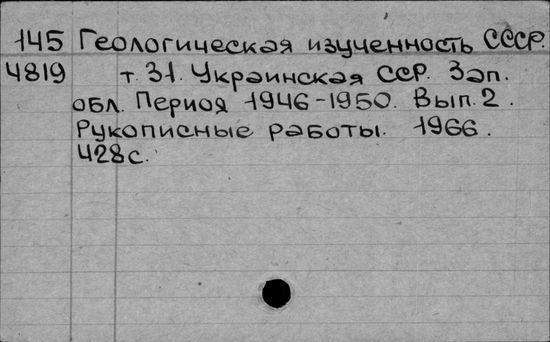 145 Геологическая изученность СССР.
4819 т. 31. Украинская ССР. Зап.
обл. Период 1946-1950. Вып. 2.
Рукописные работы. 1966.
428с.